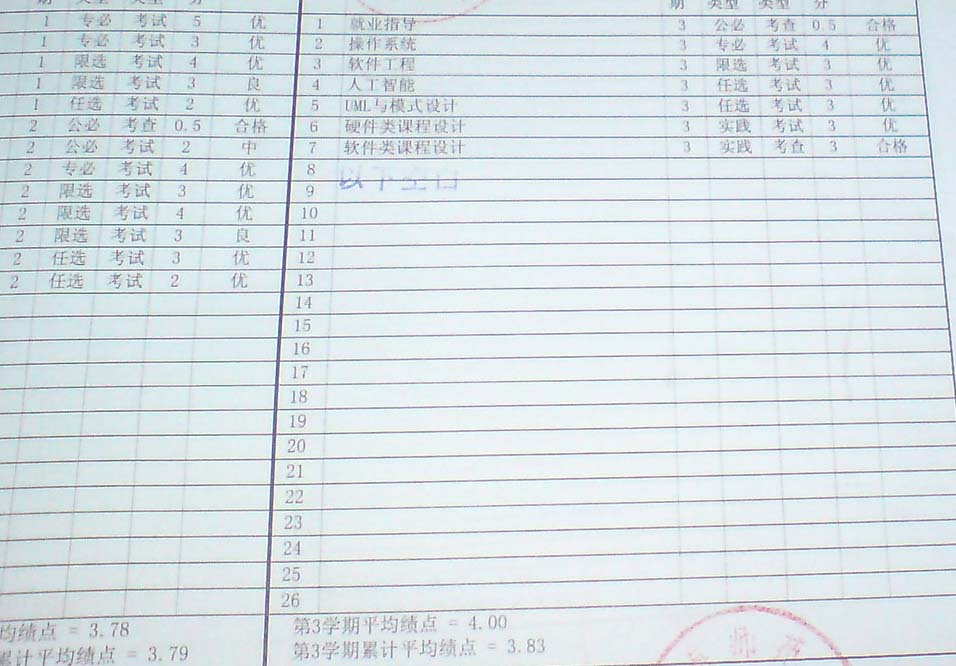 期 类型 类型 分
1 专必 考试 5 优
1 专必 考试 3 优
1 限选 考试 4 优
1 限选 考试 3 良
1 任选 考试 2 优
2 公必 考查 0.5 合格
2 公必 考试 2 中
2 专必 考试 4 优
2 限选 考试 3 优
2 限选 考试 4 优
2 限选 考试 3 良
2 任选 考试 3 优
2 任选 考试 2 优
均绩点 = 3.78
累计平均绩点 = 3.79
期 类型 类型 分
1 就业指导 3 公必 考查 0.5 合格
2 操作系统 3 专必 考试 4 优
3 软件工程 3 限选 考试 3 优
4 人工智能 3 任选 考试 3 优
5 UML与模式设计 3 任选 考试 3 优
6 硬件类课程设计 3 实践 考试 3 优
7 软件类课程设计 3 实践 考查 3 合格
8
以下空白
9
10
11
12
13
14
15
16
17
18
19
20
21
22
23
24
25
26
第3学期平均绩点 = 4.00
第3学期累计平均绩点 = 3.83